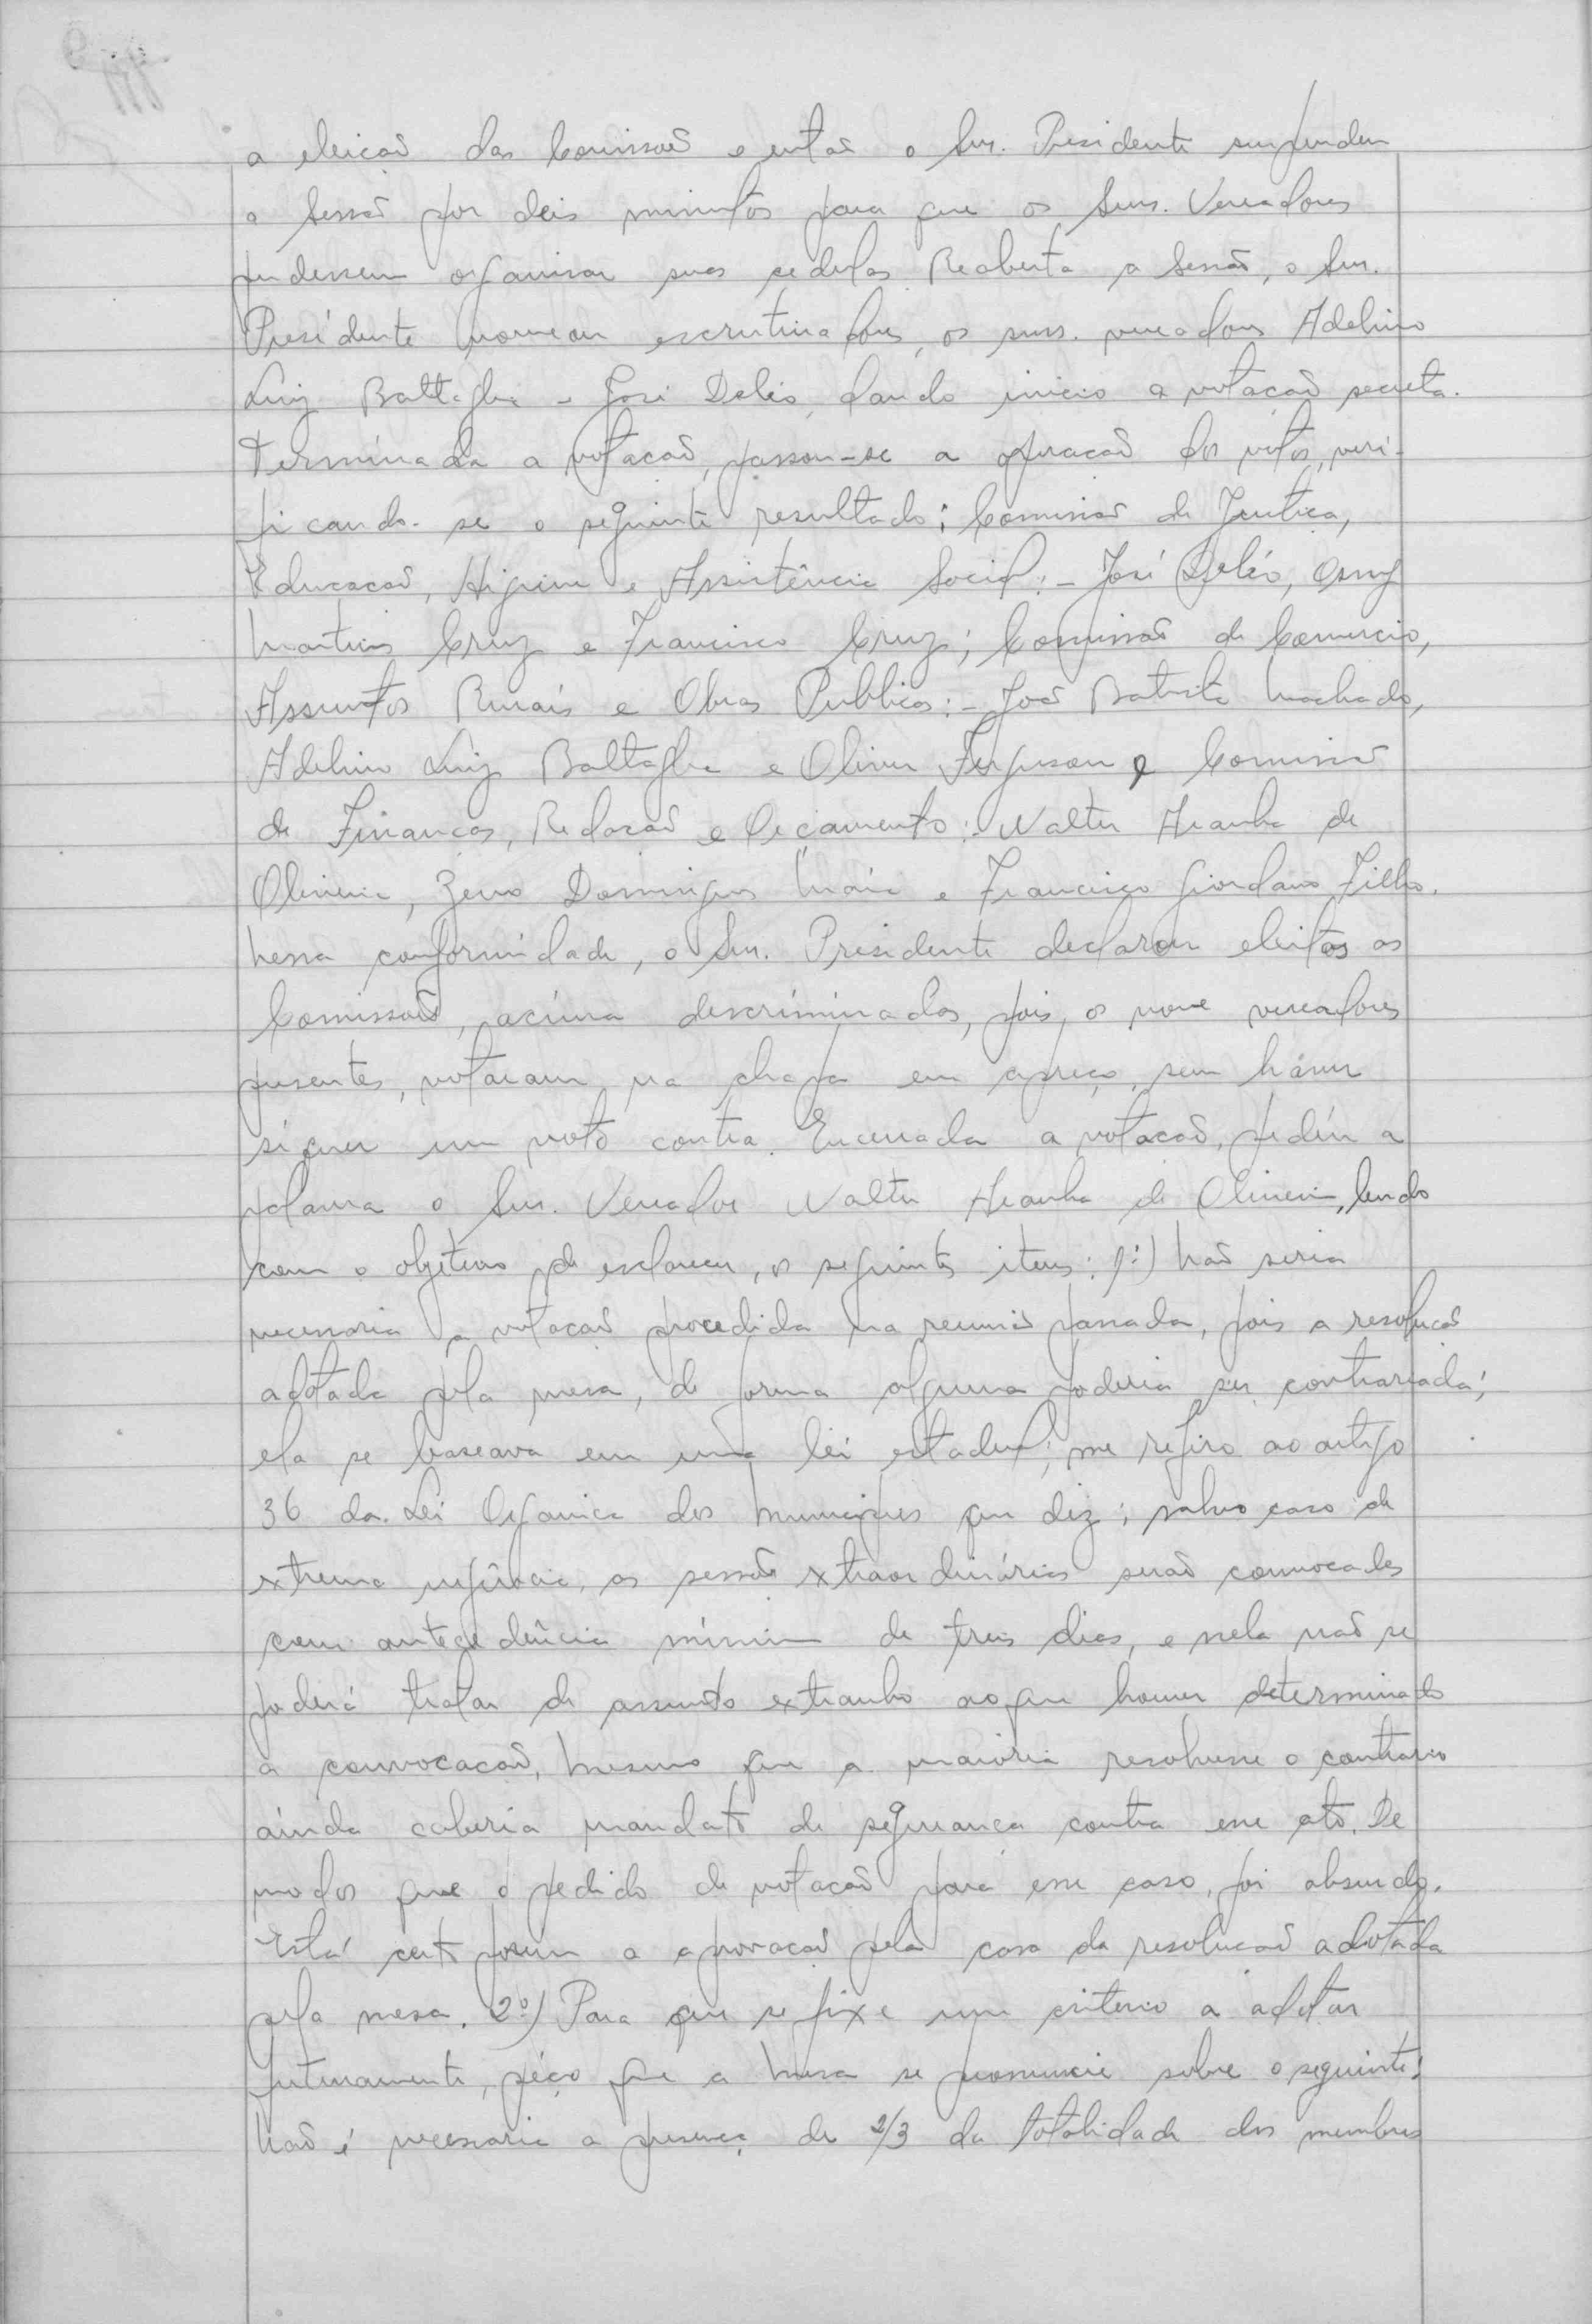 a eleicaõ das Comissoẽs e entaõ o Snr. Presidente suspendeu
a Sessaõ por deis minutos para que os Snrs. Vereadores
pudessem organisar suas cedulas. Reaberta a Sessaõ, o Snr.
Presidente nomeou escrutinadores, os snrs. vereadores Adelino
Luiz Battaglia e José Deléo, dando inicio a votacaõ secreta.
Terminada a votacaõ, passou-se a apuracaõ dos votos, veri-
ficando-se o seguinte resultado: Comissaõ de Justica,
Educacaõ, Higiene e Assistência Social:- José Deléo, Osny
Martins Cruz e Francisco Cruz; Comissaõ de Comercio,
Assuntos Rurais e Obras Publicas:- Joaõ Batista Machado,
Adelino Luiz Battaglia e Oliver Ferguson e Comissaõ
de Financas, Redacaõ e Orçamento:- Walter Aranha de
Oliveira, Zeno Domingues Maia e Francisco Giordano Filho.
Nessa conformidade, o Snr. Presidente declarou eleitas as
Comissoẽs, acima descriminadas, pois, os nove vereadores
presentes, votaram na chapa em apreço, sem háver
síquer um voto contra. Encerrada a votacaõ, pediu a
palavra o Snr. Vereador Walter Aranha de Oliveira, lendo
com o objetivo de esclarecer, os seguintes itens: 1º) Naõ seria
necessaria a votacaõ procedida na reuniaõ passada, pois a resolucaõ
adotada pela mesa, de forma alguma poderia ser contrariada;
ela se baseava em uma lei estadual; me refiro ao artigo
36 da Lei Organica dos Municipios que diz; salvo caso de
extrema urgência, as sessoẽs extraordinárias seraõ convocadas
com antecedência mínima de treis dias, e nela naõ se
poderá tratar de assunto extranho ao que houver determinado
a convocacaõ, Mesmo que a maioria resolvesse o contrario
ainda caberia mandato de seguranca contra esse ato. De
modos que o pedido de votacaõ para esse caso, foi absurdo.
Está certo porem a aprovacaõ pela casa da resolucaõ adotada
pela mesa. 2º) Para que se fixe um criterio a adotar
futuramente, péço que a Mesa se pronuncie sobre o seguinte:
Naõ é necessaria a presença de 2/3 da totalidade dos membros